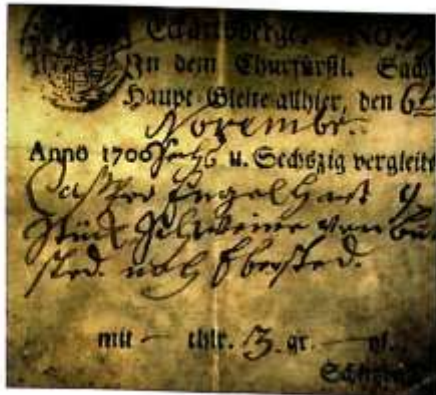 Eckartsberge. No.
In dem Churfürstl. Sächs
Haupt Gleite allhier, den 6
Novembr.
Anno 1706 u. Sechszig vergleite
Caspar Engelhart 4
Stück Schweine von
sted. nach Ebersted.
mit — thlr. 3. gr. — pf.